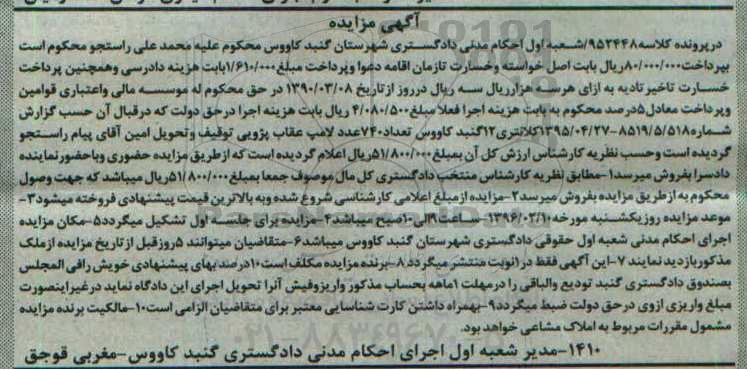 آگهی مزایده
در پرونده کلاسه ۹۵۲۴۴۸/شعبه اول احکام مدنی دادگستری شهرستان گنبد کاووس محکوم علیه محمد علی راستجو محکوم است
بپرداخت ۸۰/۰۰۰/۰۰۰ریال بابت اصل خواسته وخسارت تازمان اقامه دعوا وپرداخت مبلغ ۱/۶۱۰/۰۰۰بابت هزینه دادرسی وهمچنین پرداخت
خسارت تاخیر تادیه به ازای هر سه هزار ریال درروز از تاریخ ۱۳۹۰/۰۳/۰۸ در حق محکوم له موسسه مالی واعتباری قوامین
وپرداخت معادل۵درصد محکوم به بابت هزینه اجرا فعلا مبلغ ۴/۰۸۰/۵۰۰ ریال بابت هزینه اجرا در حق دولت که درقبال آن حسب گزارش
شماره۸۵۱۹/۵/۵۱۸-۱۳۹۵/۰۴/۲۷کلانتری۱۲گنبد کاووس تعداد۷۴۰عدد لامپ عقاب پژویی توقیف وتحویل امین آقای پیام راستجو
گردیده است وحسب نظریه کارشناس ارزش کل آن بمبلغ ۵۱/۸۰۰/۰۰۰ریال اعلام گردیده است که ازطریق مزایده حضوری وباحضورنماینده
دادسرا بفروش میرسد۱-مطابق نظریه کارشناس منتخب دادگستری کل مال موصوف جمعا بمبلغ ۵۱/۸۰۰/۰۰۰ریال میباشد که جهت وصول
محکوم به ازطریق مزایده بفروش میرسد۲-مزایده ازمبلغ اعلامی کارشناسی شروع شده وبه بالاترین قیمت پیشنهادی فروخته میشود۳-
موعد مزایده روزیکشنبه مورخه ۱۳۹۶/۰۲/۱۰-ساعت۹الی۱۰صبح میباشد۴-مزایده برای جلسه اول تشکیل میگردد۵-مکان مزایده
اجرای احکام مدنی شعبه اول حقوقی دادگستری شهرستان گنبد کاووس میباشد۶-متقاضیان میتوانند ۵روزقبل ازتاریخ مزایده ازملک
مذکوربازدید نمایند ۷-این آگهی فقط در۱نوبت منتشر میگردد۸-برنده مزایده مکلف است۱۰درصد بهای پیشنهادی خویش رافی المجلس
بصندوق دادگستری گنبد تودیع والباقی را درمهلت ۱ماهه بحساب مذکور واریزوفیش آنرا تحویل اجرای این دادگاه نماید درغیراینصورت
مبلغ واریزی ازوی درحق دولت ضبط میگردد۹-بهمراه داشتن کارت شناسایی معتبر برای متقاضیان الزامی است۱۰-مالکیت برنده مزایده
مشمول مقررات مربوط به املاک مشاعی خواهد بود.
۱۴۱۰-مدیر شعبه اول اجرای احکام مدنی دادگستری گنبد کاووس-مغربی قوجق
۰۲۱-۸۸۳۴۹۶۷۰